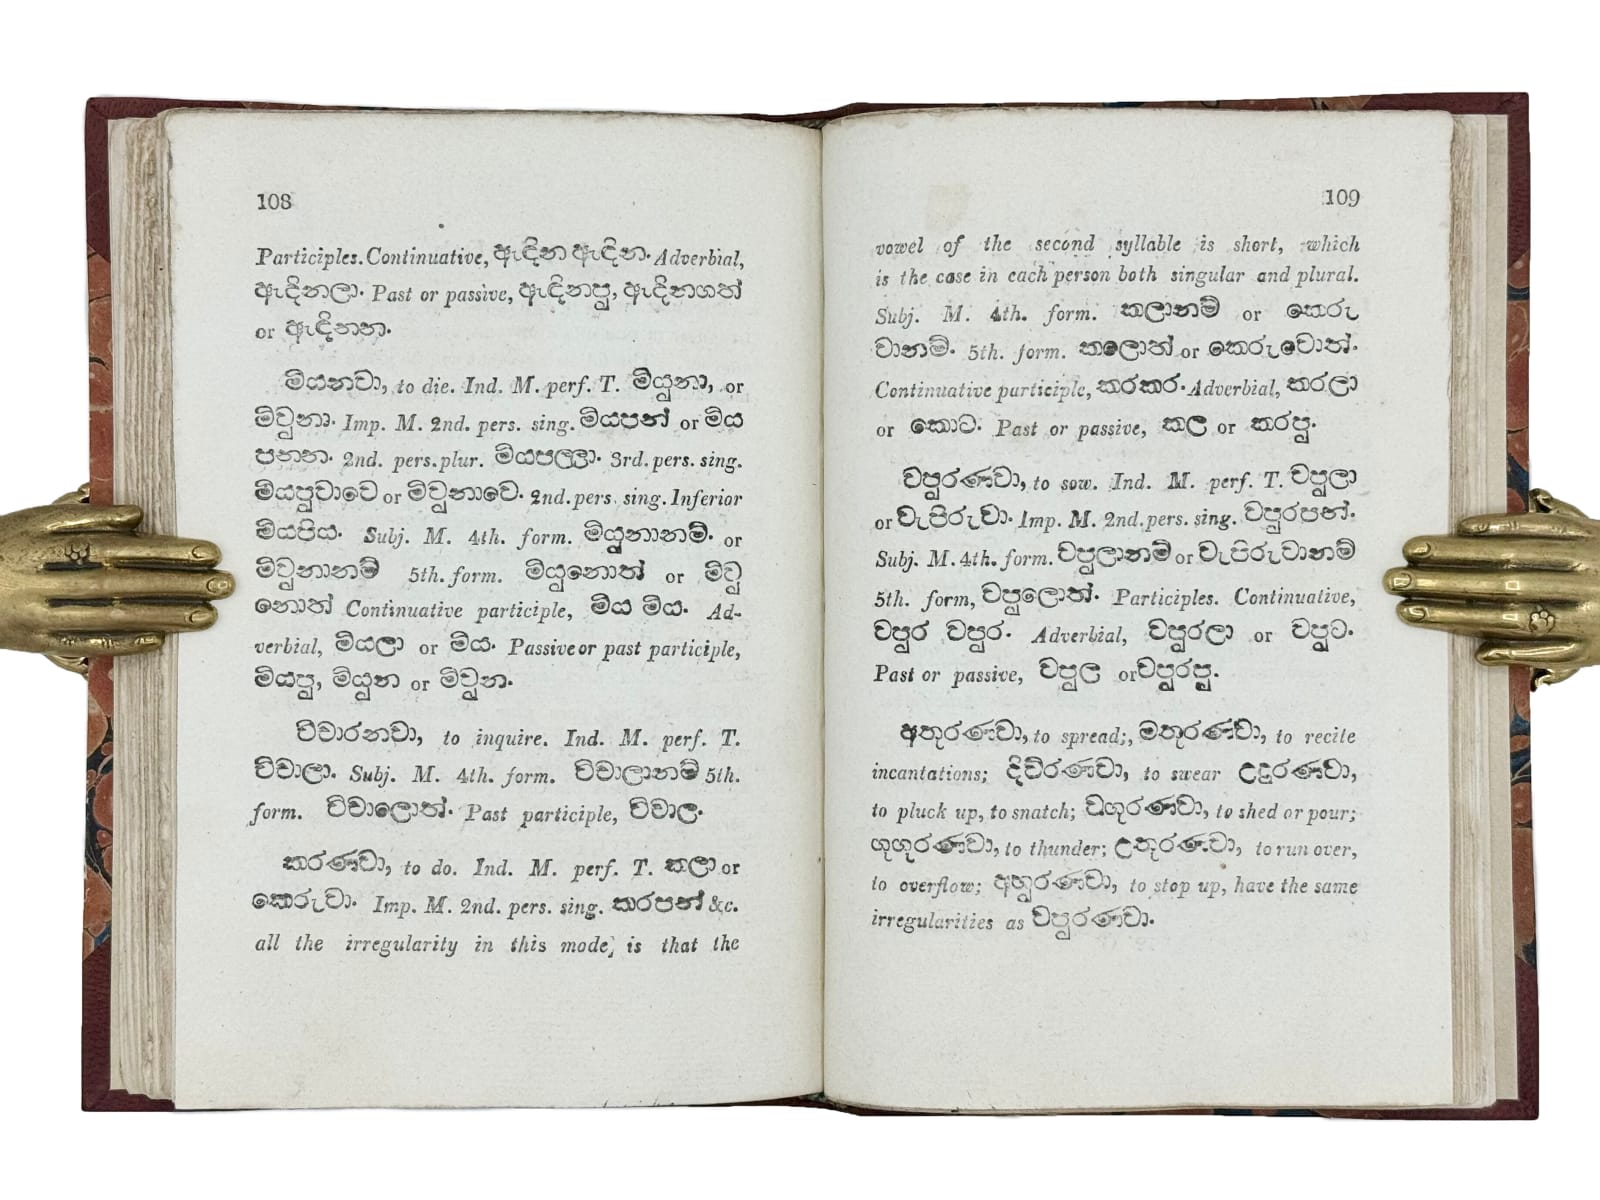 108
Participles. Continuative, ඇඳින ඇඳින. Adverbial,
ඇඳිනලා. Past or passive, ඇඳිනපු, ඇඳිනගත්
or ඇඳිනන.
මියනවා, to die. Ind. M. perf. T. මියුනා, or
මිවුනා. Imp. M. 2nd. pers. sing. මියපන් or මිය
පනන. 2nd. pers. plur. මියපල්ලා. 3rd. pers. sing.
මියපුවාවෙ or මිවුනාවෙ. 2nd. pers sing. Inferior
මියපිය. Subj. M. 4th. form. මියුනානම්. or
මිවුනානම් 5th. form. මියුනොත් or මිවු
නොත් Continuative participle, මිය මිය. Ad-
verbial, මියලා or මිය. Passive or past participle,
මියපු, මියුන or මිවුන.
විචාරනවා, to inquire. Ind. M. perf. T.
විචාලා. Subj. M. 4th. form. විචාලානම් 5th.
form. විචාලොත්. Past participle, විචාල.
කරණවා, to do. Ind. M. perf. T. කලා or
කෙරුවා. Imp. M. 2nd. pers. sing. කරපන් &c.
all the irregularity in this mode, is that the
109
vowel of the second syllable is short, which
is the case in each person both singular and plural.
Subj. M. 4th. form. කලානම් or කෙරු
වානම්. 5th. form. කලොත් or කෙරුවොත්.
Continuative participle, කරකර. Adverbial, කරලා
or කොට. Past or passive, කල or කරපු.
වපුරණවා, to sow. Ind. M. perf. T. වපුලා
or වැපිරුවා. Imp. M. 2nd. pers. sing. වපුරපන්.
Subj. M. 4th. form. වපුලානම් or වැපිරුවානම්
5th. form, වපුලොත්. Participles. Continuative,
වපුර වපුර. Adverbial, වපුරලා or වපුට.
Past or passive, වපුල or වපුරපු.
අතුරණවා, to spread;, මතුරණවා, to recite
incantations; දිවිරණවා, to swear උදුරණවා,
to pluck up, to snatch; වගුරණවා, to shed or pour;
ගුගුරණවා, to thunder; උතුරණවා, to run over,
to overflow; අහුරණවා, to stop up, have the same
irregularities as වපුරණවා.